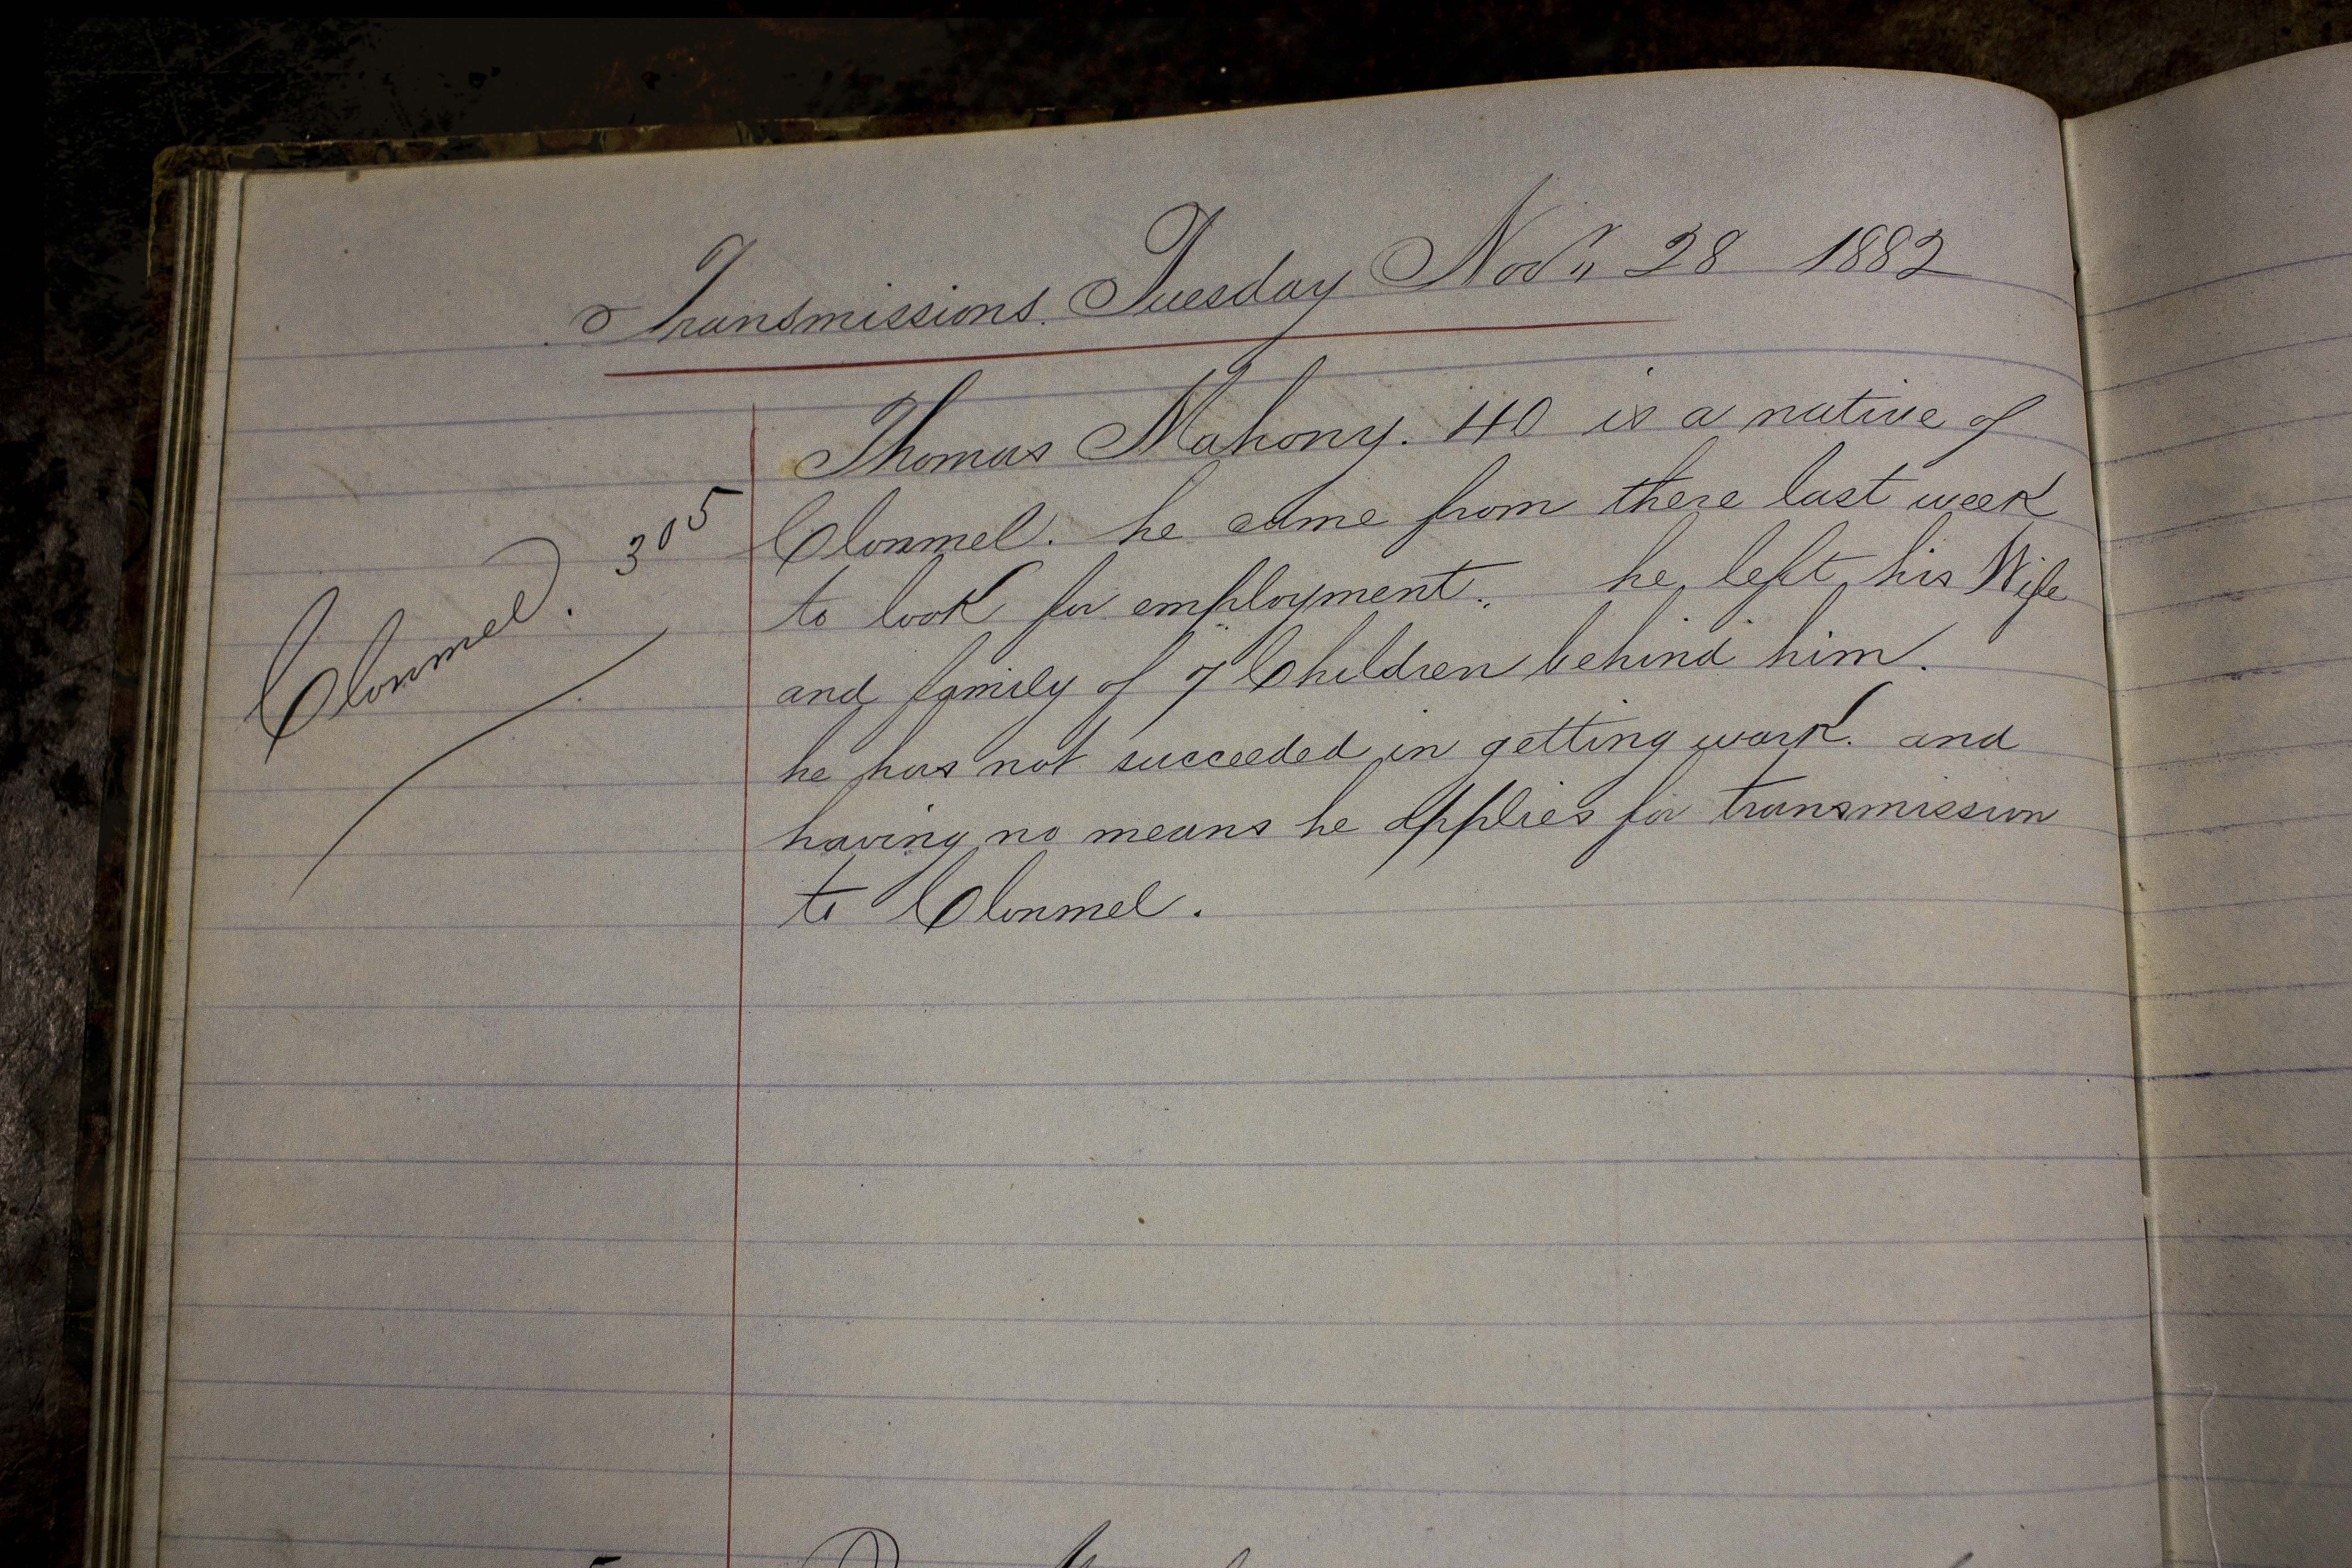 Transmissions. Tuesday Novr 28 1882
Thomas Mahony. 40 is a native of
Clonmel. he came from there last week
to look for employment. he left his Wife
and family of 7 Children behind him.
he has not succeeded in getting work. and
having no means he applies for transmission
to Clonmel.
Clonmel. 305